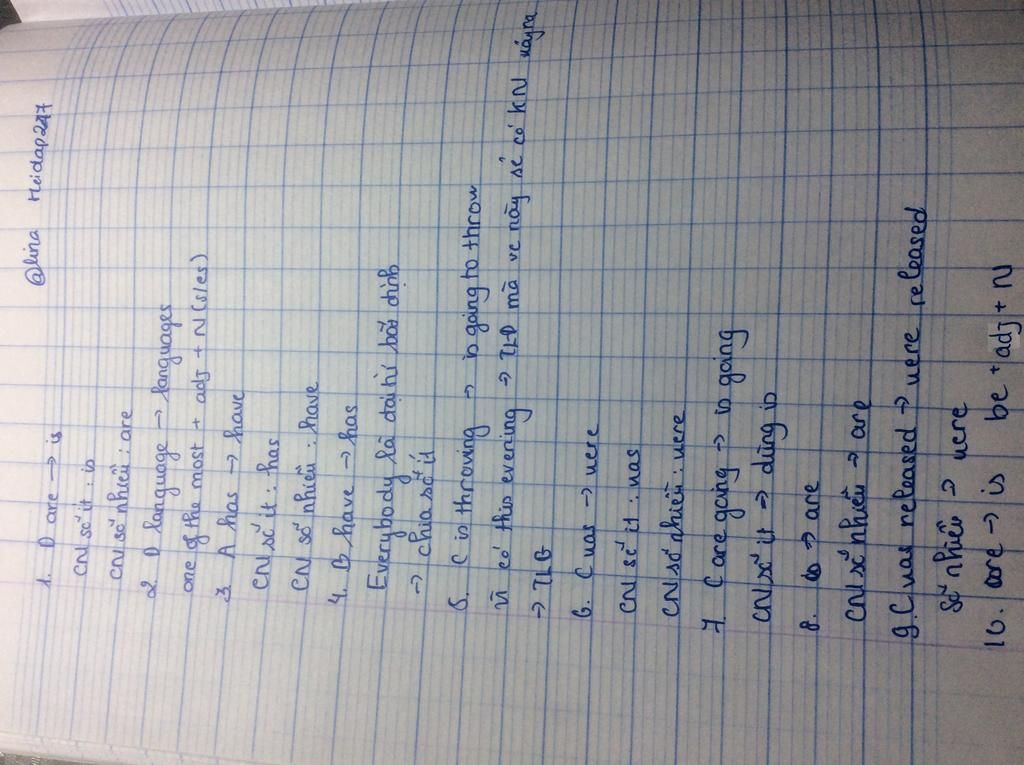 @lina Heidap247
1. D are → is
CN số ít : is
CN số nhiều : are
2 D language → languages
one of the most + adj + N(s/es)
3 A has → have
CN số ít : has
CN số nhiều : have
4. B have → has
Everybody là đại từ bất định
→ chia số ít
5. C is throwing → is going to throw
vì có this evening → TLD mà vc này sẽ có KN xảy ra
→ TLG
6. C was → were
CN số ít : was
CN số nhiều : were
7 C are going → is going
CN số ít → dùng is
8. is → are
CN số nhiều → are
9. C was released → were released
Số nhiều → were
10. are → is be + adj + N